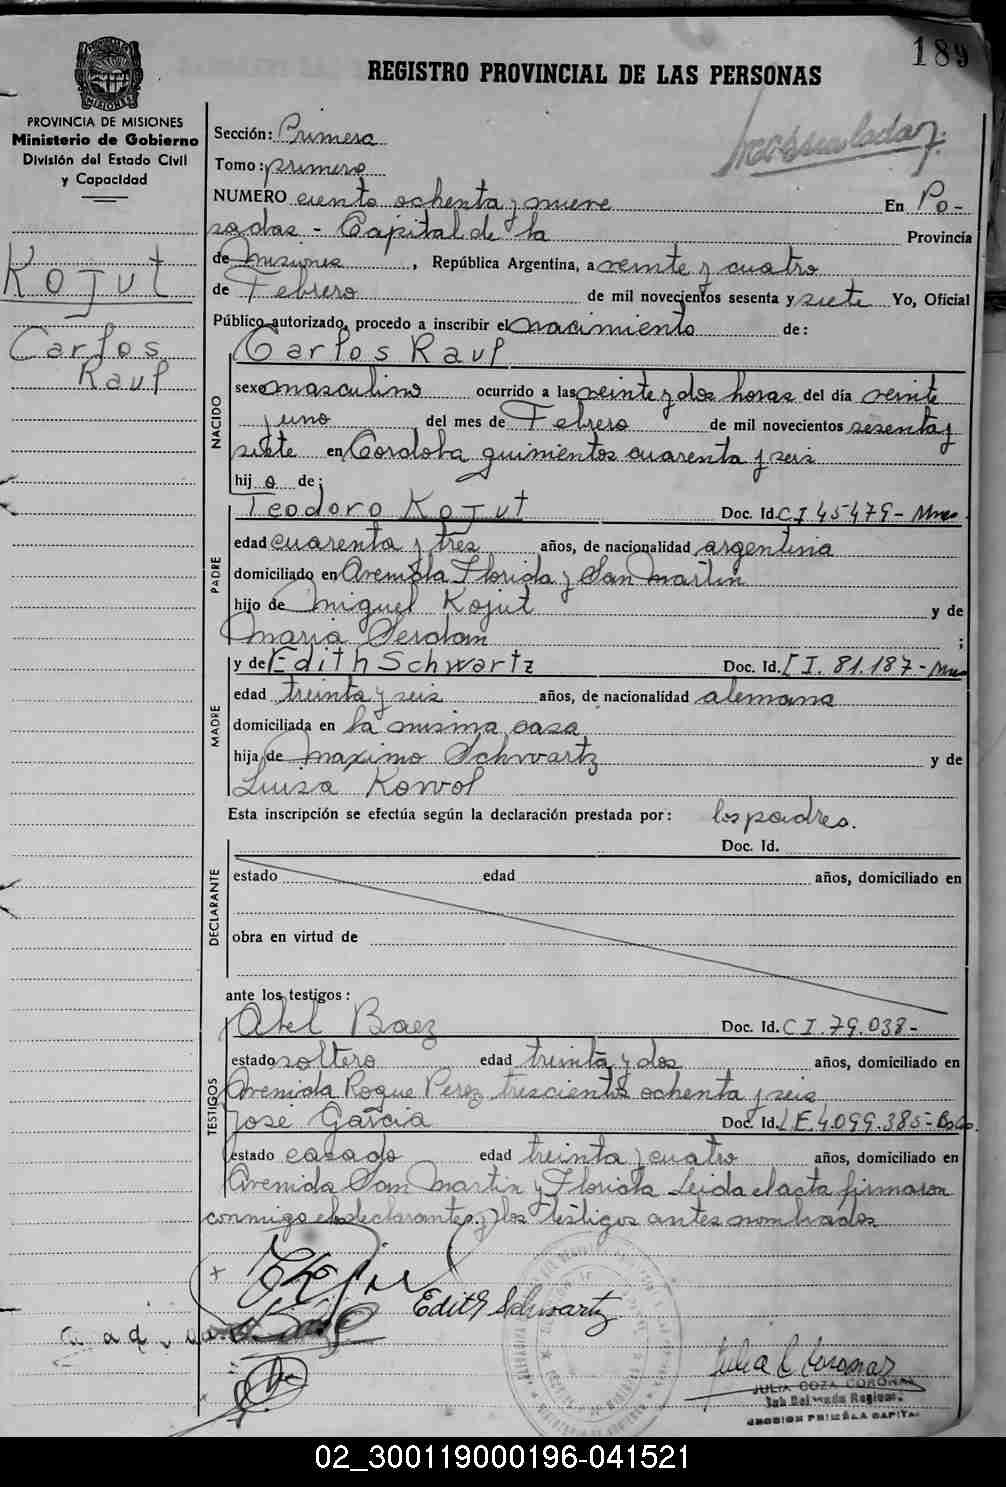 189
REGISTRO PROVINCIAL DE LAS PERSONAS
PROVINCIA DE MISIONES
Ministerio de Gobierno
División del Estado Civil
y Capacidad
Kojut
Carlos
Raul
Sección: Primera
Tomo: primero
NUMERO ciento ochenta y nueve En Po-
sadas - Capital de la Provincia
de Misiones, República Argentina, a veinte y cuatro
de Febrero de mil novecientos sesenta y siete Yo, Oficial
Público autorizado, procedo a inscribir el nacimiento de:
Carlos Raul
NACIDO
sexo masculino ocurrido a las veinte y dos horas del día veinte
y uno del mes de Febrero de mil novecientos sesenta y
siete en Cordoba quinientos cuarenta y seis
hij o de:
PADRE
Teodoro Kojut Doc. Id. C I 45479 - Mnes
edad cuarenta y tres años, de nacionalidad argentina
domiciliado en Avenida Florida y San Martin
hijo de Miguel Kojut y de
Maria ;
MADRE
y de Edith Schwartz Doc. Id. C I. 81.187 - Mnes
edad treinta y seis años, de nacionalidad alemana
domiciliada en la misma casa
hija de Maximo Schwartz y de
Luisa Kowol
Esta inscripción se efectúa según la declaración prestada por: los padres.
DECLARANTE
Doc. Id.
estado edad años, domiciliado en
obra en virtud de
ante los testigos:
TESTIGOS
Abel Baez Doc. Id. C I. 79.038 -
estado soltero edad treinta y dos años, domiciliado en
Avenida Roque Perez trescientos ochenta y seis
Jose Garcia Doc. Id. L E. 4.099.385 -
estado casado edad treinta y cuatro años, domiciliado en
Avenida San Martin y Florida Leida el acta firmaron
conmigo los declarantes y los testigos antes nombrados
Edith Schwartz
Julia C Coronar
JULIA COZA CORONAR
SECCION PRIMERA CAPITAL
02_300119000196-041521